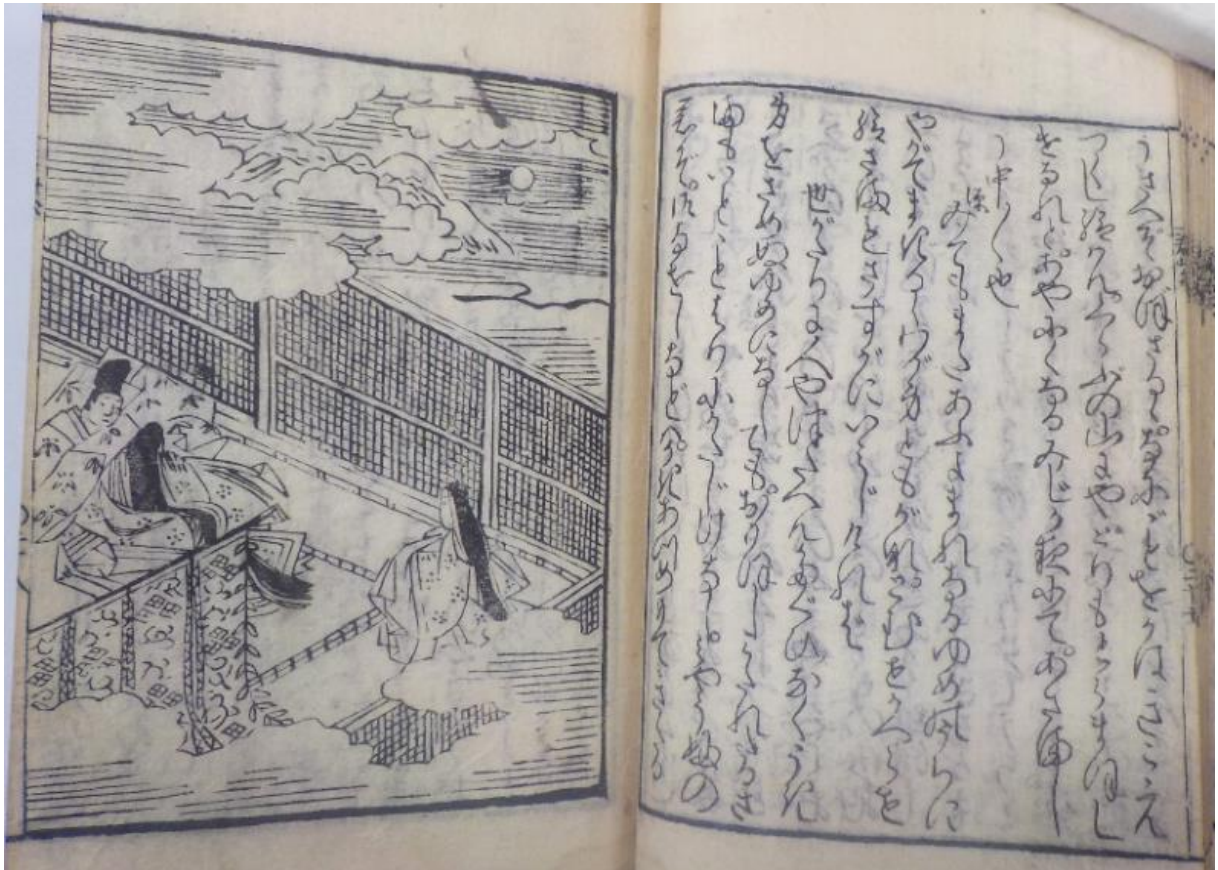 うさへぞおほさるゝなにごとをかはきこえ
つくし給はんくらぶの山にやどりもとらまほし
げなれどあやにくなるみじか夜にてあさまし
う中〱也
源
みてもまたあふよまれなるゆめのうちに
やがてまぎるゝわが身ともがなとむせかへらせ
給さまもさすがにいみじければ
世がたりに人やつたへんたぐひなくうき
身をさめぬゆめになしてもおぼしみだれたるさ
まもいとことわりにかたじけなしみやうぶの
君ぞ御なをしなどはかきあつめもてきたる